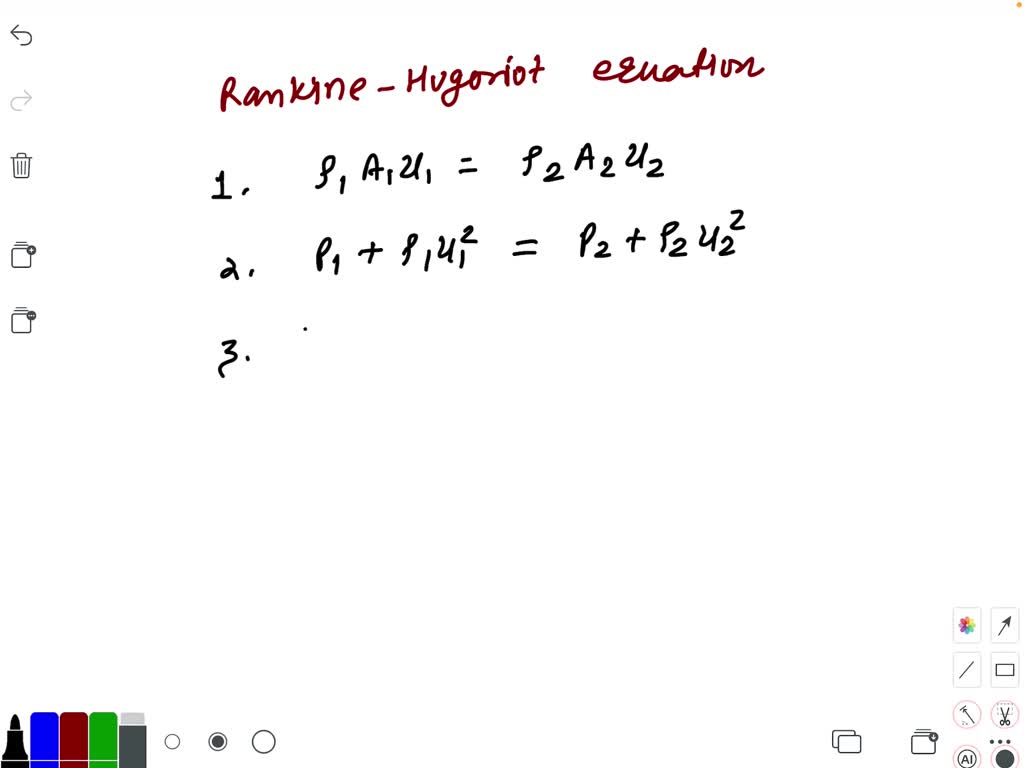 Rankine - Hugoniot equation
1. ρ₁ A₁ u₁ = ρ₂ A₂ u₂
2. P₁ + ρ₁u₁² = P₂ + ρ₂ u₂²
3.
AI